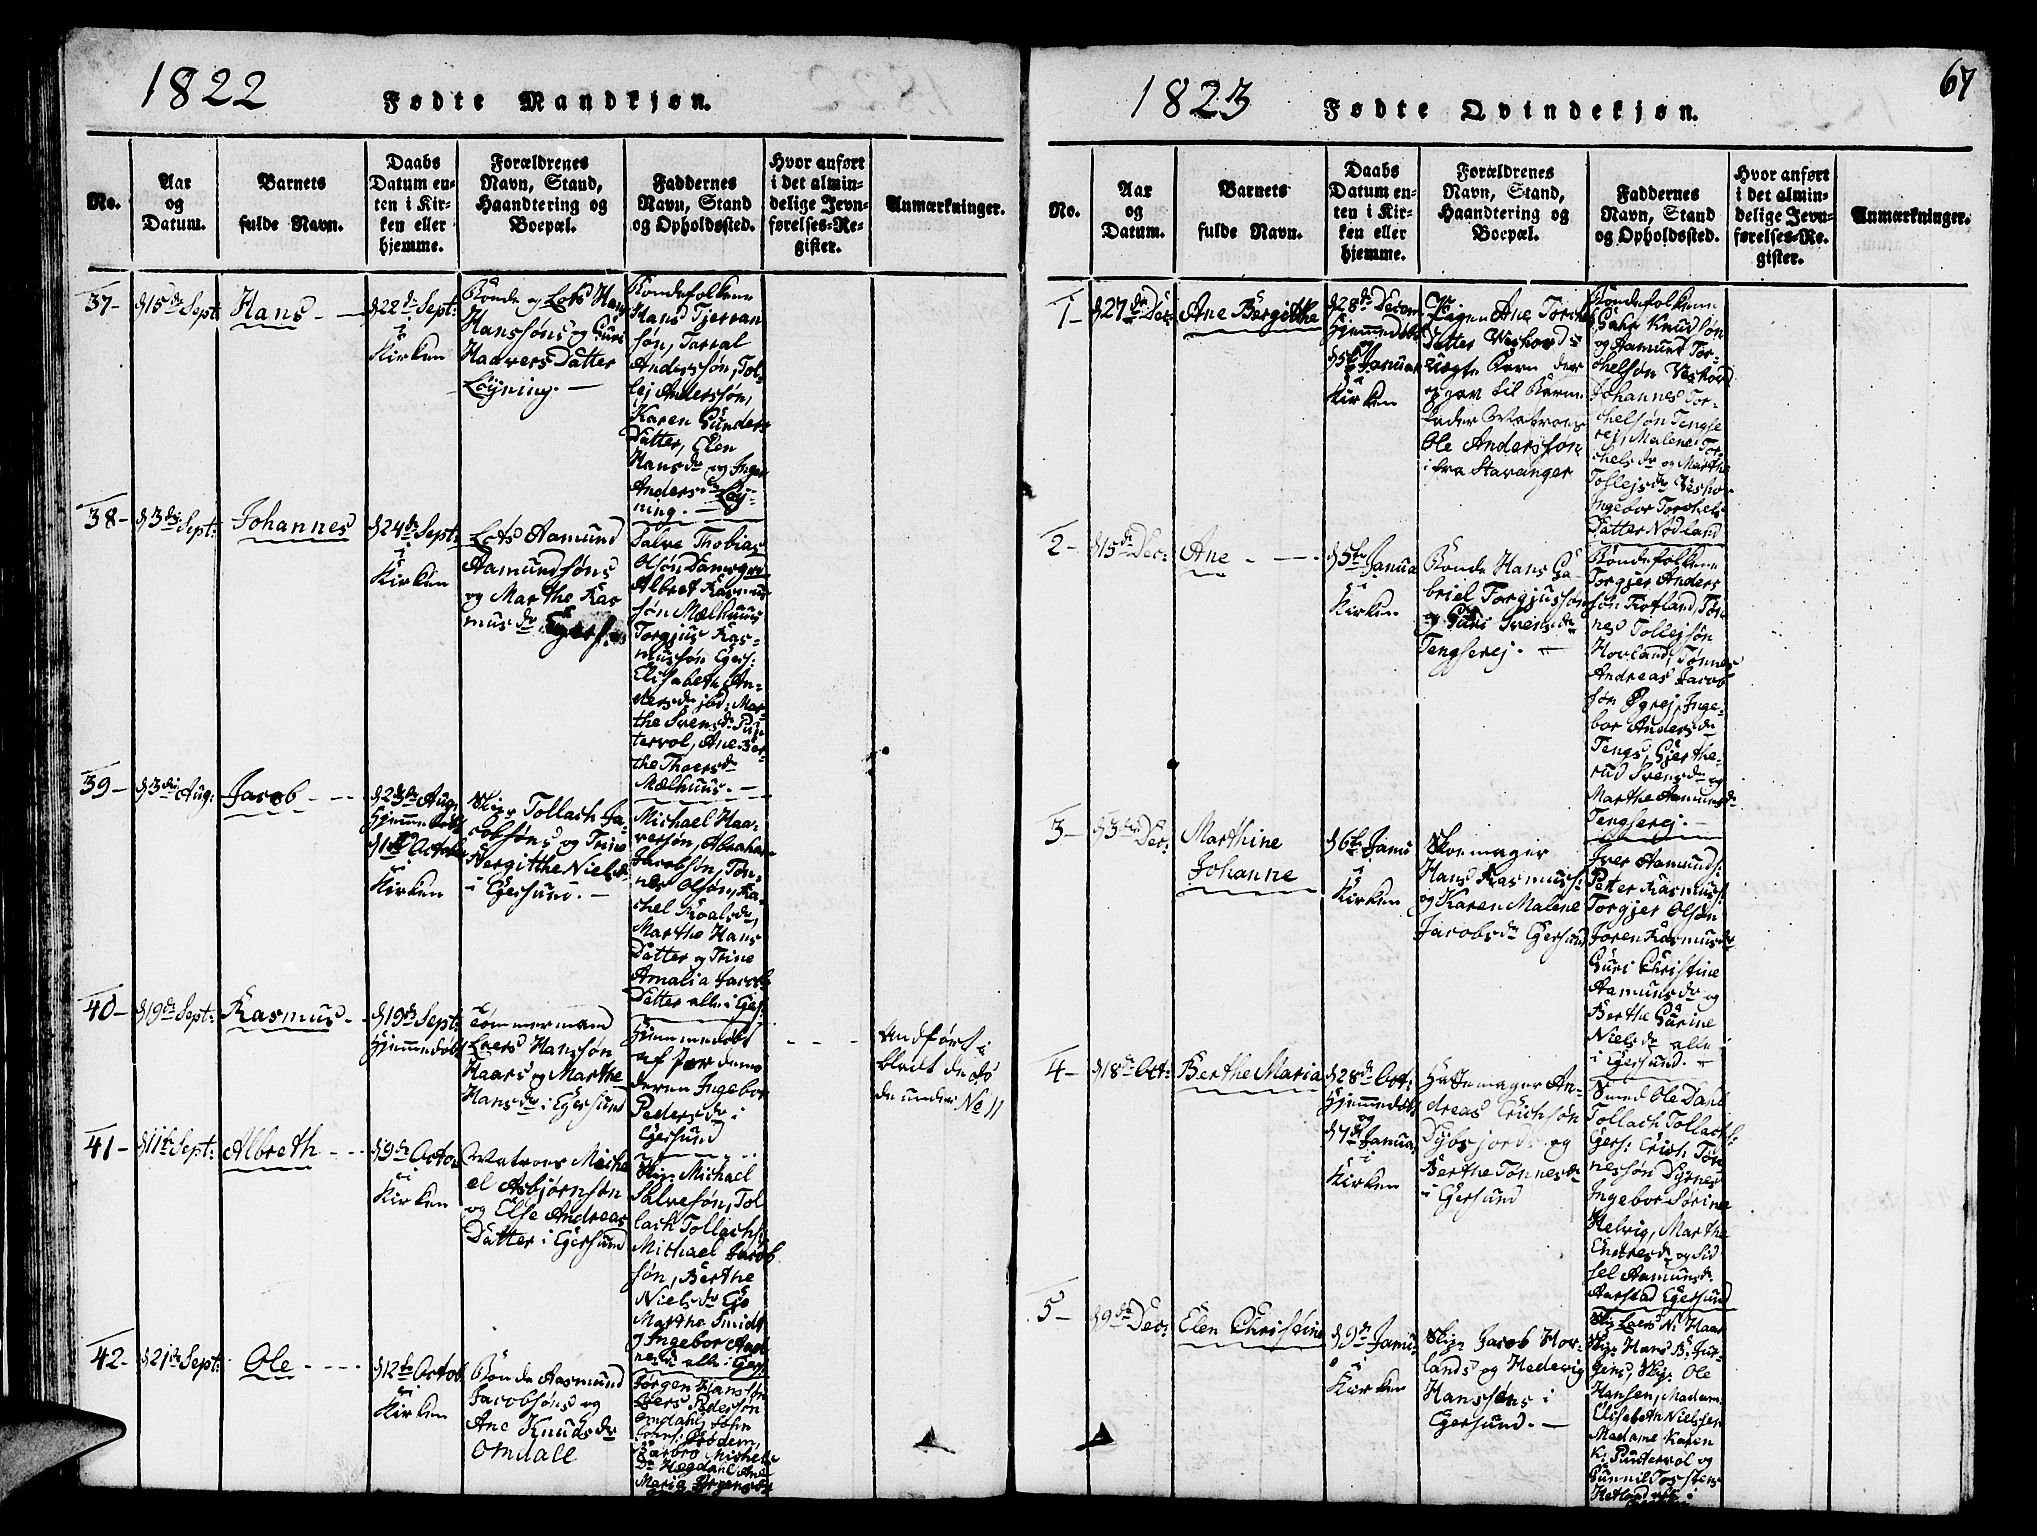 1822
Fødte Mandkjøn.
No.
Aar
og
Datum.
Barnets
fulde Navn.
Daabs
Datum en-
ten i Kir-
ken eller
hjemme.
Forældrenes
Navn, Stand,
Haandtering og
Boepæl.
Faddernes
Navn, Stand
og Opholdssted.
Hvor anført
i det almin-
delige Jevn-
førelses-Re-
gister.
Anmærkninger.
37-
d 15de Sept:
Hans
d 22de Sept:
i
Kirken
Bonde og Lots Hans
Hanssøns og Guri
Haavers Datter
Løyning.
Bondefolkene
Hans Tjerran
søn, Tarral
Anderssøn, Tol-
lej Anderssøn,
Karen Gunders
Datter, Elen
Hansdr og Inger
Andersdr Løy-
ning.
38-
d 3die Sept:
Johannes
d 24de Sept:
i
Kirken
Lots Aamund
Aamundsøns
og Marthe Ras
musdr Egers
Salve Thobias
Olsøn Damsgrd
Albret Rasmus
søn Mælhuus
Torgjus Ras-
mussøn Egers:
Elisabeth An-
dersdr ibd: Mar-
the Svensdr Pun
tervol, Ane Ber
the Thoersdr
Mælhuus.
39-
d 3die Aug:
Jacob
d 23de Aug:
Hjemmedøbt
d 1ste October
i
Kirken
Skipr Tollach Ja-
cobsøns og Trine
Bergitthe Nielsdr
i Egersund.
Michael Haa-
versøn, Abraham
Jacobsøn, Tøn-
nes Olsøn, Ra-
chel Roalsdr,
Marthe Hans
Datter og Trine
Amalia Jacobs
Datter alle i Egers
40-
d 19de Sept:
Rasmus
d 19de Sept:
Hjemmedøbt
Tømmermand
Loers Hanssøn
Haars og Marthe
Hansdr i Egersund
Hjemmedøbt
af Jordemo
deren Ingebor
Pedersdr i
Egersund
Andført i
bladt de dø
de under No 11
41-
d 11te Sept:
Albreth
d 9de Octo
i
Kirken
Matros Micha
el Asbjørnsøn
og Else Andreas
Datter i Egersund
Skipr Michael
Salvesøn, Tol
lach Tollachs:
Michael Jacob
søn, Berthe
Nielsdr Eie
Marthe Smidt
og Ingebor Aan
nesdr alle i Egers
42-
d 21de Sept:
Ole
d 12te Octob
i
Kirken
Bonde Aasmund
Jacobsøns og
Ane Knudsdr
Omdall
Jørgen Hanssøn
Loers Pedersøn
Omdahl,
Barbro Michels
Dr Hegdahl, Ane
Maria Jørgensdr
1823
Fødte Qvindekjøn.
67
No.
Aar
og
Datum.
Barnets
fulde Navn.
Daabs
Datum en-
ten i Kir-
ken eller
hjemme.
Forældrenes
Navn, Stand,
Haandtering og
Boepæl.
Faddernes
Navn, Stand
og Opholdssted.
Hvor anført
i det almin-
delige Jevn-
førelses-Re-
gister.
Anmærkninger.
1-
d 27de Dec:
Ane Bergithe
d 28de Decem
Hjemmedøbt
d 5te Januar
i
Kirken
Pigen Ane Torchels
Datter Veshovds
uægte Barn der
opgav til Barne
fader Matros
Ole Anderssøn
ifra Stavanger
Bondefolkene
Gahr Knudsøn
og Aamund Tor-
chelsøn Veshovd
Johannes Tor-
chelsøn Tengse
rej, Malene Tor-
chelsdr og Marthe
Tollejsdr Vesho-
Ingebor Torchels
Datter Nodland
2-
d 15de Dec:
Ane
d 5te Janua
i
Kirken
Bonde Hans Ga-
briel Torgjussøn
og Guri Svensdr
Tengserej.
Bondefolkene
Torgjer Anders
søn Trotland, Tøn-
nes Tollejsøn
Hovland, Tønnes
Andreas Jacob
søn Øgrej, Inge-
bor Andersdr
Tengs, Gjerthe-
rud Svensdr og
Marthe Aamunsdr
Tengserej.
3-
d 3die Dec:
Marthine
Johanne
d 6te Janu
i
Kirken
Skomager
Hans Rasmuss:
og Karen Malene
Jacobsdr Egersund
Iver Aamunds:
Peter Rasmuss:
Torgjer Olsøn
Joren Rasmusdr
Guri Christine
Aamunsdr og
Berthe Gurine
Nielsdr alle
i Egersund.
4-
d 18de Oct:
Berthe Maria
d 28de Oct:
Hjemmedøbt
og
d 7de Janua
i
Kirken
Hattemager An-
dreas Erichsøn
Dybfjords og
Berthe Tønnesdr
i Egersund
Smed Ole Dahl
Tollach Tollachs:
Egers: Erich Tøn
nessøn Dyrnes
Ingebor Sørine
Helvig, Marthe
Endresdr og Sid
sel Aamunsdr
Aarstad Egersund
5-
d 9de Dec:
Elen Christine
d 9de Janu
i
Kirken
Skipr Jacob Hov-
lands og Hedevig
Hanssøns i
Egersund.
Skipr Loers N: Haar
Skipr Hans B: Jur-
gens, Skipr Ole
Hansen, Madam
Elisabeth Nielsen
Madame Karen
K: Puntervol og
Gunnil Torstens
Hetland alle i